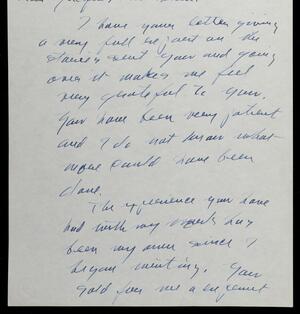 I have your letter giving
a very full report on the
stories sent you and going
over it makes me feel
very grateful to you.
You have been very patient
and I do not know what
more could have been
done.
The experience you have
had with my work has
been my own since I
began writing. You
sold for me a